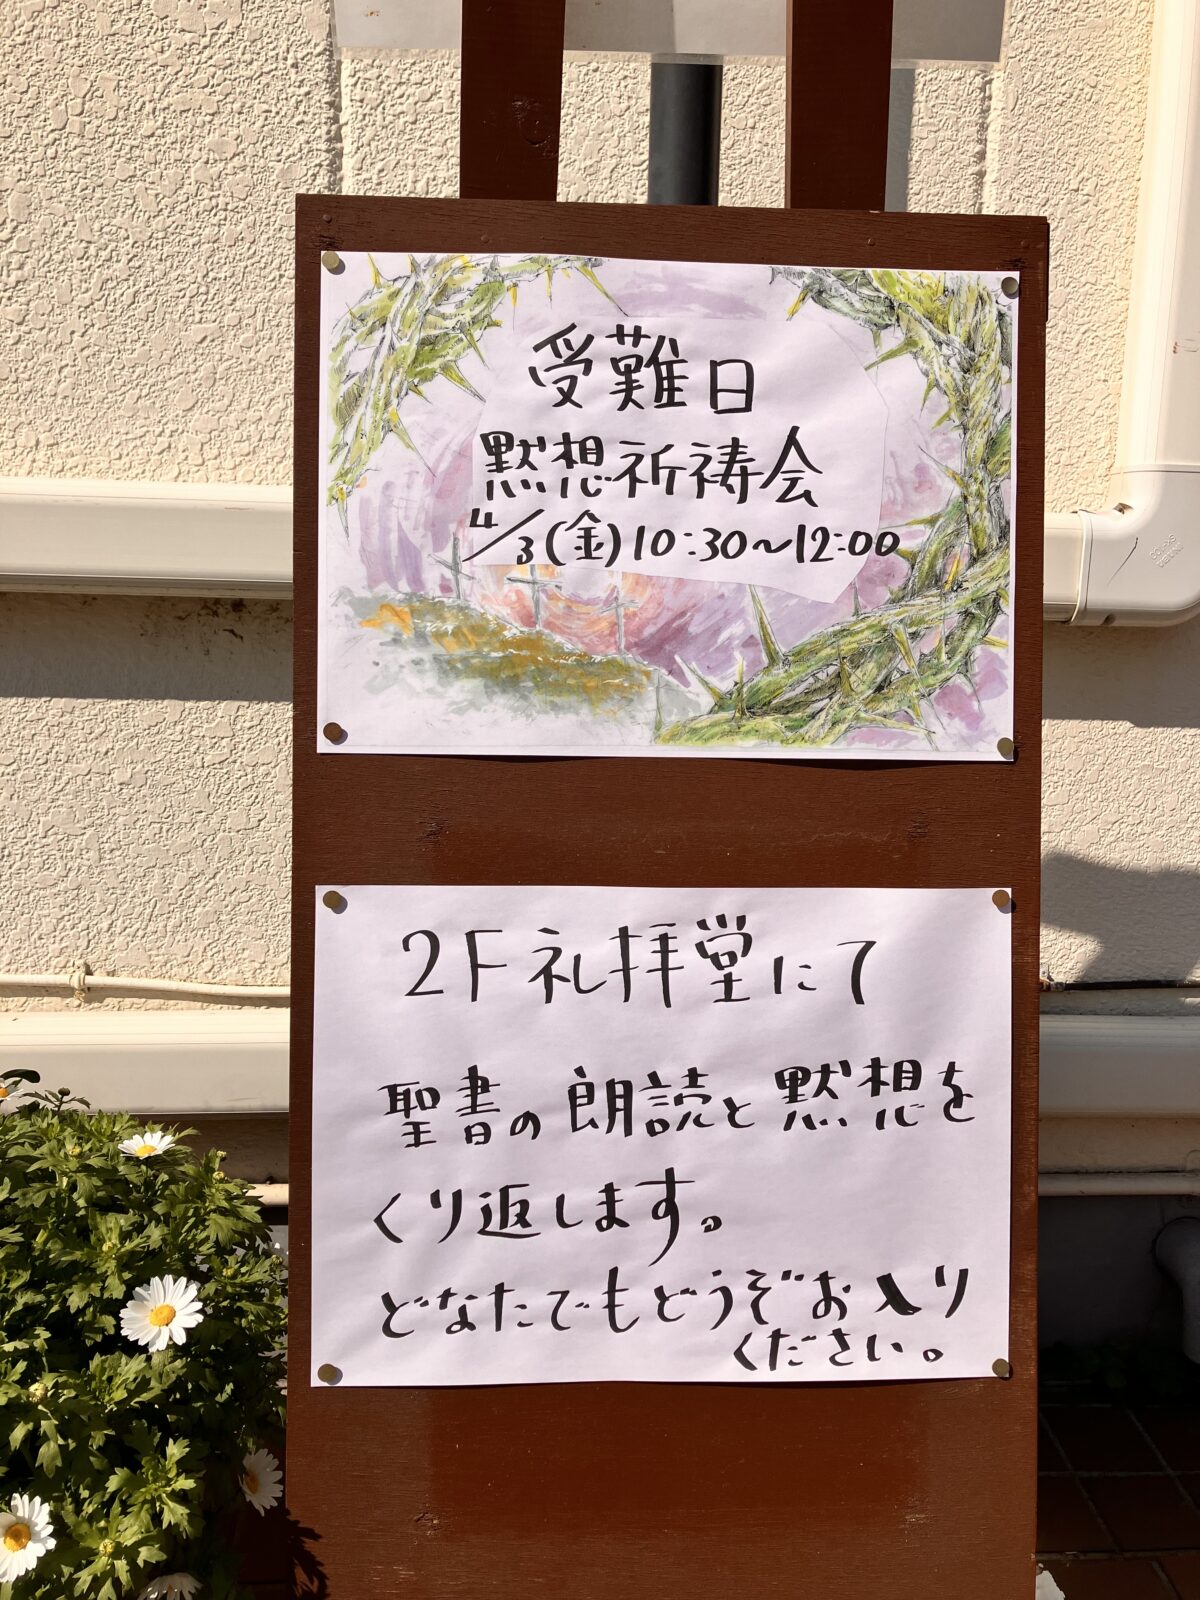 受難日
黙想祈祷会
4/3(金)10:30〜12:00
2F礼拝堂にて
聖書の朗読と黙想を
くり返します。
どなたでもどうぞお入り
ください。